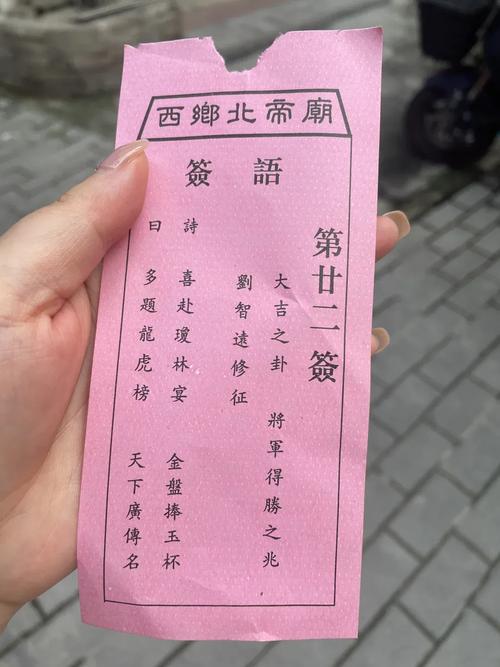 西鄉北帝廟
簽語
第廿二簽
大吉之卦 將軍得勝之兆
劉智遠修征
詩曰
喜赴瓊林宴 金盤捧玉杯
多題龍虎榜 天下廣傳名